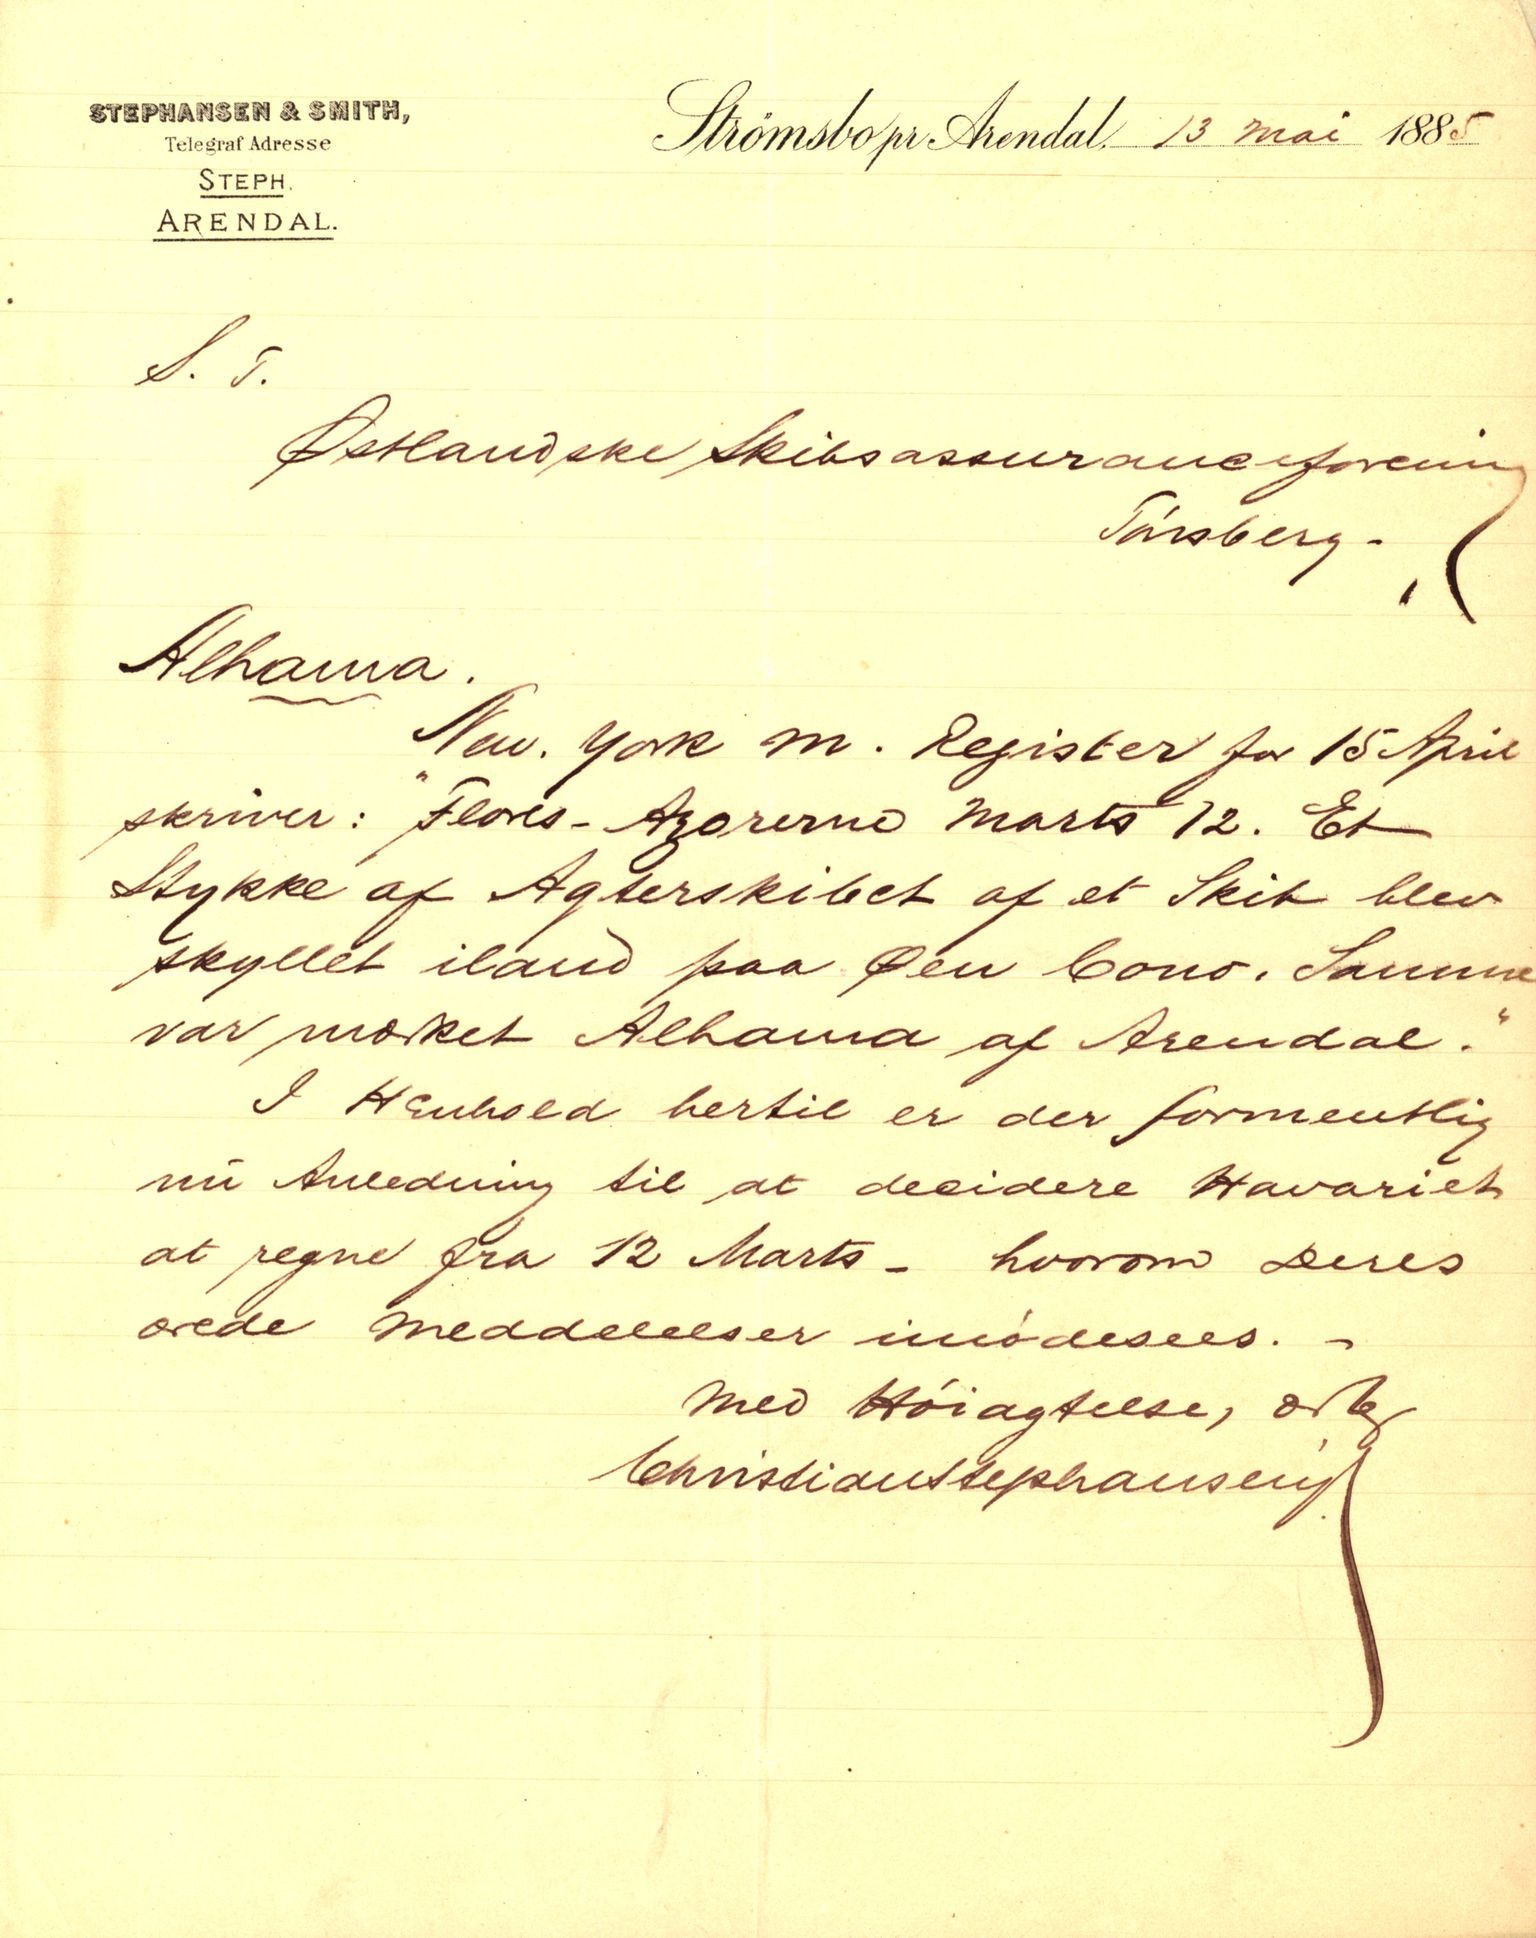 STEPHANSEN & SMITH,
Telegraf Adresse
STEPH.
ARENDAL.
Strömsbo pr Arendal, 13 Mai 1885
S. T.
Østlandske Skibsassuranceforening
Tönsberg -
Alhama.
New. York M. Register for 15 April
skriver: "Flores - Azorerne Marts 12. Et
Stykke af Agterskibet af et Skib blev
skyllet iland paa Øen Corvo. Samme
var mærket Alhama af Arendal."
I Henhold hertil er der formentlig
nu Anledning til at decidere Havariet
at regne fra 12 Marts - hvorom Deres
ærede Meddelelser imödesees. -
Med Höiagtelse, ærb
Christian Stephansen